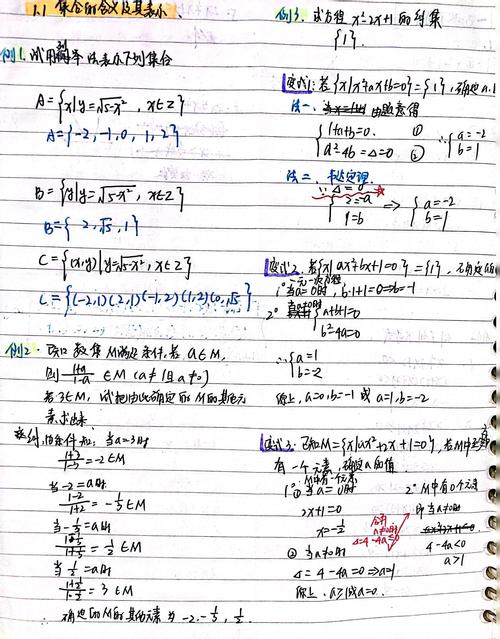 1.1 集合的含义及其表示、
例1. 试用列举法表示下列集合
A={x|y=√5-x², x∈Z}
A={-2,-1,0,1,2}
B={y|y=√5-x², x∈Z}
B={2,√5,1}
C={(x,y)|y=√5-x², x∈Z}
C={(-2,1)(2,1)(-1,2)(1,2)(0,√5)}
例2. 已知数集M满足条件,若 a∈M,
则 1+a/1-a ∈M (a≠1且a≠0)
若3∈M, 试把由此确定的M的其他元
素求出来
由条件知: 当a=3时
1+3/1-3=-2∈M
当-2=a时
1-2/1+2=-1/3∈M
当-1/3=a时
=1/2∈M
当1/2=a时
=3∈M
∴确定的M的其他元素为-2,-1/3,1/2.
例3. 求方程x²-2x+1的解集
{1}.
变式1: 若{x|x²+ax+b=0}={1},
法一. 由题意得
{1+a+b=0. ①
a²-4b=△=0 ②
∴{a=-2
b=1
法二. 韦达定理
∵△=0
{2=-a
1=b
⇒{a=-2
b=1
变式2. 若{x|ax²+bx+1=0}={1},
1° 当a=0时, b·1+1=0⇒b=-1
2° 当a≠0时
{a+b+1=0
b²-4a=0
∴{a=1
b=-2
综上, a=0,b=-1 或 a=1,b=-2
变式3. 已知M={x|ax²+2x+1=0}, 若M中至多
有一个元素, 确定a的值
1° M中有一个元素
① 当a=0时
2x+1=0
x=-1/2
② 当a≠0时
△=4-4a=0⇒a=1
综上. a≥1或a=0.
2° M中有0个元素
即当a≠0时
4-4a<0
a>1
合并
a≠0时
△=4-4a≤0